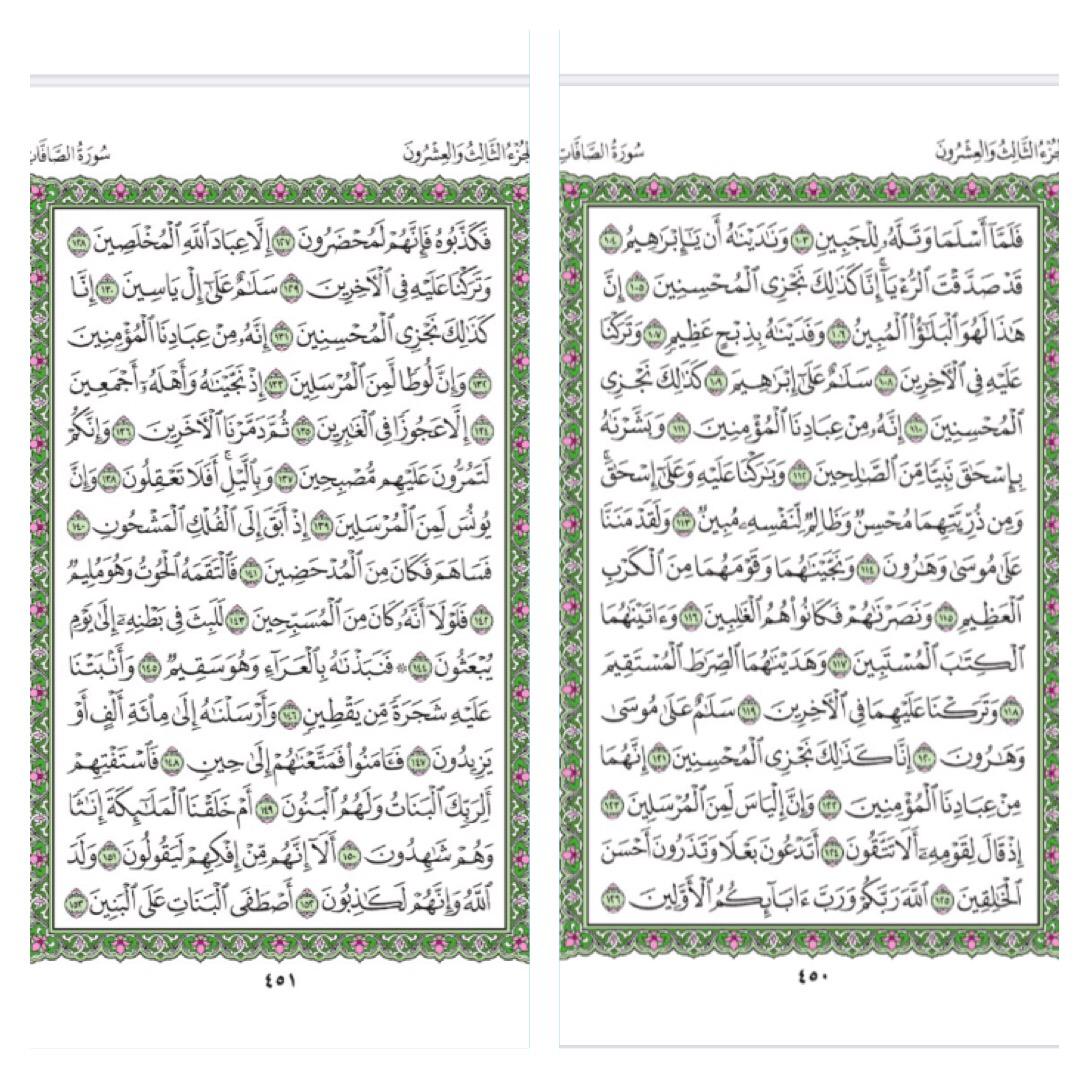 الجزء الثالث والعشرون
سورة الصافات
فَلَمَّآ أَسۡلَمَا وَتَلَّهُۥ لِلۡجَبِينِ ١٠٣ وَنَٰدَيۡنَٰهُ أَن يَٰٓإِبۡرَٰهِيمُ ١٠٤
قَدۡ صَدَّقۡتَ ٱلرُّءۡيَآۚ إِنَّا كَذَٰلِكَ نَجۡزِي ٱلۡمُحۡسِنِينَ ١٠٥ إِنَّ
هَٰذَا لَهُوَ ٱلۡبَلَٰٓؤُاْ ٱلۡمُبِينُ ١٠٦ وَفَدَيۡنَٰهُ بِذِبۡحٍ عَظِيمٖ ١٠٧ وَتَرَكۡنَا
عَلَيۡهِ فِي ٱلۡأٓخِرِينَ ١٠٨ سَلَٰمٌ عَلَىٰٓ إِبۡرَٰهِيمَ ١٠٩ كَذَٰلِكَ نَجۡزِي
ٱلۡمُحۡسِنِينَ ١١٠ إِنَّهُۥ مِنۡ عِبَادِنَا ٱلۡمُؤۡمِنِينَ ١١١ وَبَشَّرۡنَٰهُ
بِإِسۡحَٰقَ نَبِيّٗا مِّنَ ٱلصَّٰلِحِينَ ١١٢ وَبَٰرَكۡنَا عَلَيۡهِ وَعَلَىٰٓ إِسۡحَٰقَۚ
وَمِن ذُرِّيَّتِهِمَا مُحۡسِنٞ وَظَالِمٞ لِّنَفۡسِهِۦ مُبِينٞ ١١٣ وَلَقَدۡ مَنَنَّا
عَلَىٰ مُوسَىٰ وَهَٰرُونَ ١١٤ وَنَجَّيۡنَٰهُمَا وَقَوۡمَهُمَا مِنَ ٱلۡكَرۡبِ
ٱلۡعَظِيمِ ١١٥ وَنَصَرۡنَٰهُمۡ فَكَانُواْ هُمُ ٱلۡغَٰلِبِينَ ١١٦ وَءَاتَيۡنَٰهُمَا
ٱلۡكِتَٰبَ ٱلۡمُسۡتَبِينَ ١١٧ وَهَدَيۡنَٰهُمَا ٱلصِّرَٰطَ ٱلۡمُسۡتَقِيمَ
١١٨ وَتَرَكۡنَا عَلَيۡهِمَا فِي ٱلۡأٓخِرِينَ ١١٩ سَلَٰمٌ عَلَىٰ مُوسَىٰ
وَهَٰرُونَ ١٢٠ إِنَّا كَذَٰلِكَ نَجۡزِي ٱلۡمُحۡسِنِينَ ١٢١ إِنَّهُمَا
مِنۡ عِبَادِنَا ٱلۡمُؤۡمِنِينَ ١٢٢ وَإِنَّ إِلۡيَاسَ لَمِنَ ٱلۡمُرۡسَلِينَ ١٢٣
إِذۡ قَالَ لِقَوۡمِهِۦٓ أَلَا تَتَّقُونَ ١٢٤ أَتَدۡعُونَ بَعۡلٗا وَتَذَرُونَ أَحۡسَنَ
ٱلۡخَٰلِقِينَ ١٢٥ ٱللَّهَ رَبَّكُمۡ وَرَبَّ ءَابَآئِكُمُ ٱلۡأَوَّلِينَ ١٢٦
٤٥٠
الجزء الثالث والعشرون
سورة الصافات
فَكَذَّبُوهُ فَإِنَّهُمۡ لَمُحۡضَرُونَ ١٢٧ إِلَّا عِبَادَ ٱللَّهِ ٱلۡمُخۡلَصِينَ ١٢٨
وَتَرَكۡنَا عَلَيۡهِ فِي ٱلۡأٓخِرِينَ ١٢٩ سَلَٰمٌ عَلَىٰٓ إِلۡ يَاسِينَ ١٣٠ إِنَّا
كَذَٰلِكَ نَجۡزِي ٱلۡمُحۡسِنِينَ ١٣١ إِنَّهُۥ مِنۡ عِبَادِنَا ٱلۡمُؤۡمِنِينَ
١٣٢ وَإِنَّ لُوطٗا لَّمِنَ ٱلۡمُرۡسَلِينَ ١٣٣ إِذۡ نَجَّيۡنَٰهُ وَأَهۡلَهُۥٓ أَجۡمَعِينَ
١٣٤ إِلَّا عَجُوزٗا فِي ٱلۡغَٰبِرِينَ ١٣٥ ثُمَّ دَمَّرۡنَا ٱلۡأٓخَرِينَ ١٣٦ وَإِنَّكُمۡ
لَتَمُرُّونَ عَلَيۡهِم مُّصۡبِحِينَ ١٣٧ وَبِٱلَّيۡلِۚ أَفَلَا تَعۡقِلُونَ ١٣٨ وَإِنَّ
يُونُسَ لَمِنَ ٱلۡمُرۡسَلِينَ ١٣٩ إِذۡ أَبَقَ إِلَى ٱلۡفُلۡكِ ٱلۡمَشۡحُونِ ١٤٠
فَسَاهَمَ فَكَانَ مِنَ ٱلۡمُدۡحَضِينَ ١٤١ فَٱلۡتَقَمَهُ ٱلۡحُوتُ وَهُوَ مُلِيمٞ
١٤٢ فَلَوۡلَآ أَنَّهُۥ كَانَ مِنَ ٱلۡمُسَبِّحِينَ ١٤٣ لَلَبِثَ فِي بَطۡنِهِۦٓ إِلَىٰ يَوۡمِ
يُبۡعَثُونَ ١٤٤ ۞ فَنَبَذۡنَٰهُ بِٱلۡعَرَآءِ وَهُوَ سَقِيمٞ ١٤٥ وَأَنۢبَتۡنَا
عَلَيۡهِ شَجَرَةٗ مِّن يَقۡطِينٖ ١٤٦ وَأَرۡسَلۡنَٰهُ إِلَىٰ مِاْئَةِ أَلۡفٍ أَوۡ
يَزِيدُونَ ١٤٧ فَـَٔامَنُواْ فَمَتَّعۡنَٰهُمۡ إِلَىٰ حِينٖ ١٤٨ فَٱسۡتَفۡتِهِمۡ
أَلِرَبِّكَ ٱلۡبَنَاتُ وَلَهُمُ ٱلۡبَنُونَ ١٤٩ أَمۡ خَلَقۡنَا ٱلۡمَلَٰٓئِكَةَ إِنَٰثٗا
وَهُمۡ شَٰهِدُونَ ١٥٠ أَلَآ إِنَّهُم مِّنۡ إِفۡكِهِمۡ لَيَقُولُونَ ١٥١ وَلَدَ
ٱللَّهُ وَإِنَّهُمۡ لَكَٰذِبُونَ ١٥٢ أَصۡطَفَى ٱلۡبَنَاتِ عَلَى ٱلۡبَنِينَ ١٥٣
٤٥١